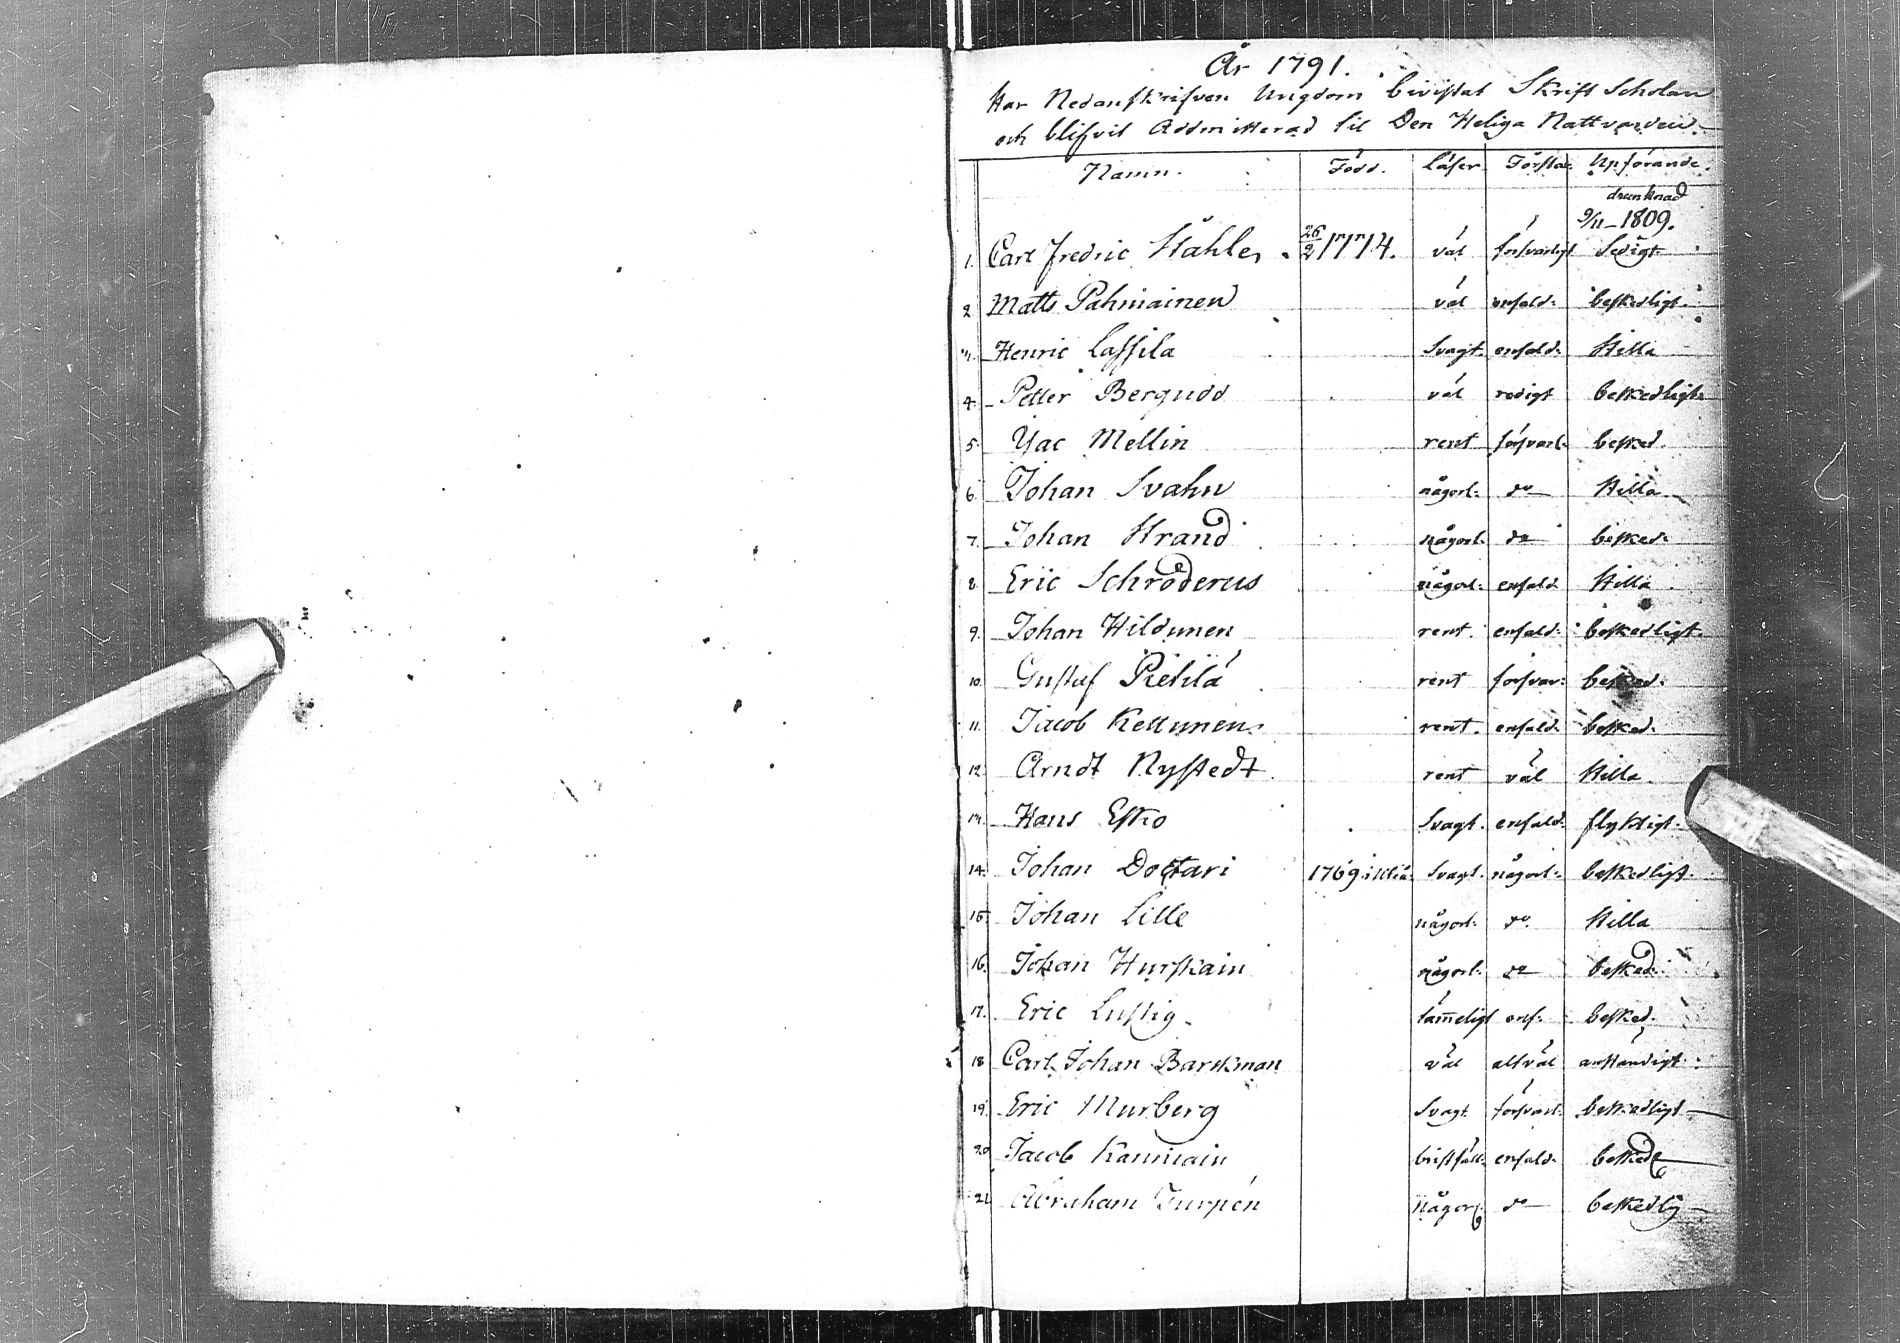 År 1791.
Har Nedanskrifven Ungdom bivistat Skrift Scholan
och blifvit Admitterad til Den Heliga Nattvarden.
Namn. Född. Läser Förstår Upförande.
drunknad
9/11 1809.
1. Carl Fredric Ståhle 26/2 1774. väl försvarligt Sedigt
2. Matts Pahmainen väl enfald: beskedligt.
3. Henric Lassila Svagt. enfald: Stilla
4. Petter Bergudd väl redigt beskedligt
5. Isac Mellin rent försvarl: besked.
6. Johan Svahn någorl: do Stilla
7. Johan Strand någorl: do besked:
8. Eric Schröderus någorl: enfald Stilla
9. Johan Hildunen rent. enfald: beskedligt.
10. Gustaf Pietilä rent försvar: besked:
11. Jacob Kettunen rent. enfald: besked:
12. Arndt Nystedt rent väl Stilla.
13. Hans Esko Svagt. enfald: flyktigt.
14. Johan Doctari 1769 Svagt. någorl: beskedligt.
15. Johan Lille någorl: do. Stilla
16. Johan Hurskain någorl: do besked:
17. Eric Lustig tämeligt enf: besked.
18 Carl Johan Barkman väl altväl anständigt:
19. Eric Murberg Svagt försvarl: beskedligt
20 Jacob Kanniain bristfäll: enfald: besked
21 Abraham Turpén någorl do beskedlig